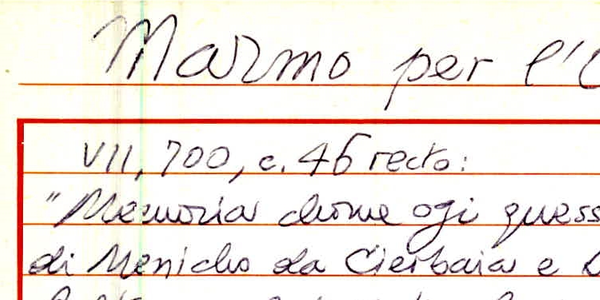 Marmo per l'
VII, 700, c. 46 recto:
"Memoria chome ogi quess
di Menicho da Cierbaia e